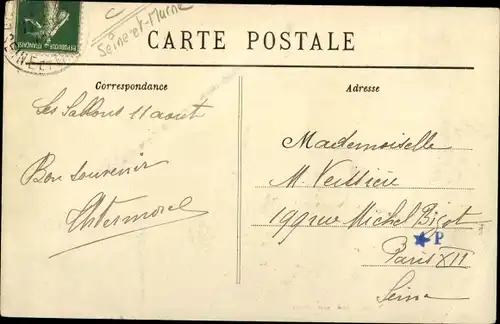 Seine-et-Marne
CARTE POSTALE
Correspondance
Adresse
Les Sablons 11 aout
Bon Souvenir
Mademoiselle
M. Veissiere
199 rue Michel Bizot
P
Paris XII
Seine